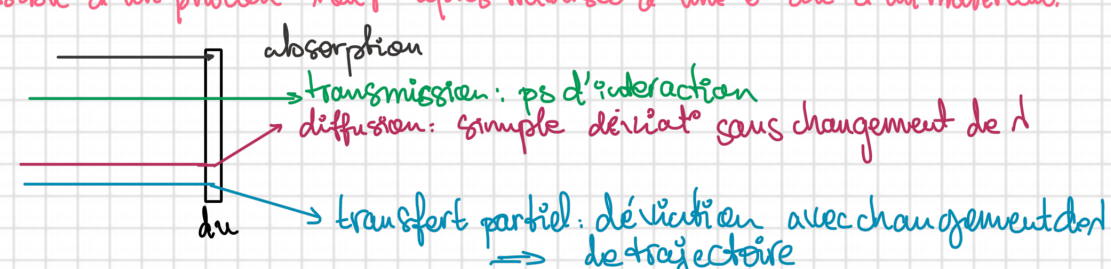 absorption
transmission: ps d'interaction
diffusion: simple déviat° sans changement de λ
transfert partiel: déviation avec changement de λ
du
⇒ de trajectoire